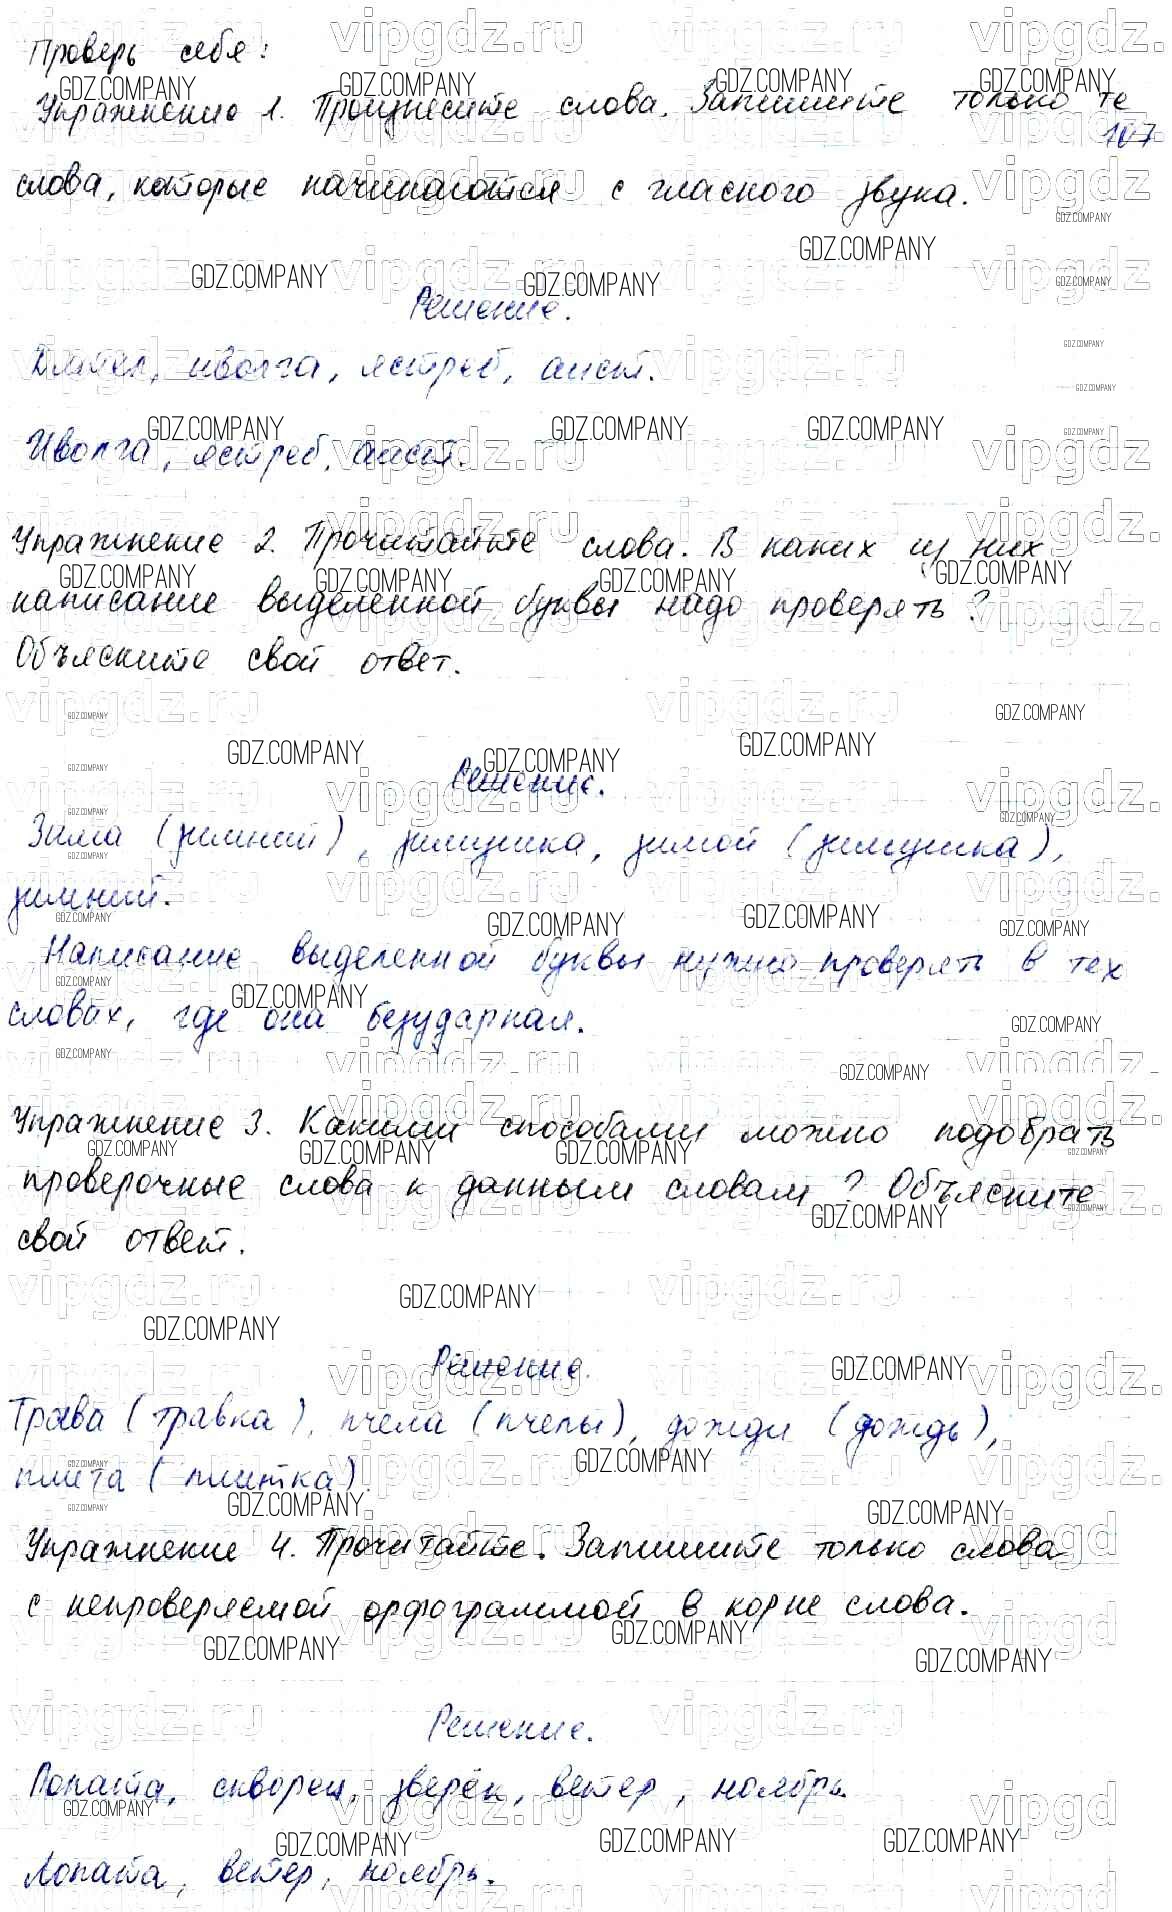 Проверь себя:
Упражнение 1. Произнесите слова. Запишите только те
107
слова, которые начинаются с гласного звука.
Решение.
Дятел, иволга, ястреб, аист.
Иволга, ястреб, аист.
Упражнение 2. Прочитайте слова. В каких из них
написание выделенной буквы надо проверять?
Объясните свой ответ.
Решение.
Зима (зимний), зимушка, зимой (зимушка),
зимний.
Написание выделенной буквы нужно проверять в тех
словах, где она безударная.
Упражнение 3. Какими способами можно подобрать
проверочные слова к данным словам? Объясните
свой ответ.
Решение.
Трава (травка), пчела (пчелы), дожди (дождь),
плита (плитка).
Упражнение 4. Прочитайте. Запишите только слова
с непроверяемой орфограммой в корне слова.
Решение.
Лопата, скворец, зверёк, ветер, ноябрь.
Лопата, ветер, ноябрь.